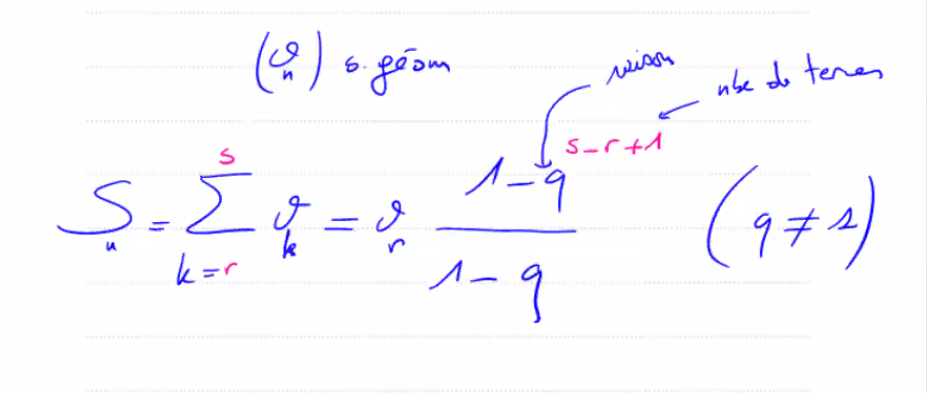 (v_n) s. géom
raison
nbe de termes
S_n = \sum_{k=r}^{s} v_k = v_r \frac{1-q^{s-r+1}}{1-q} (q ≠ 1)